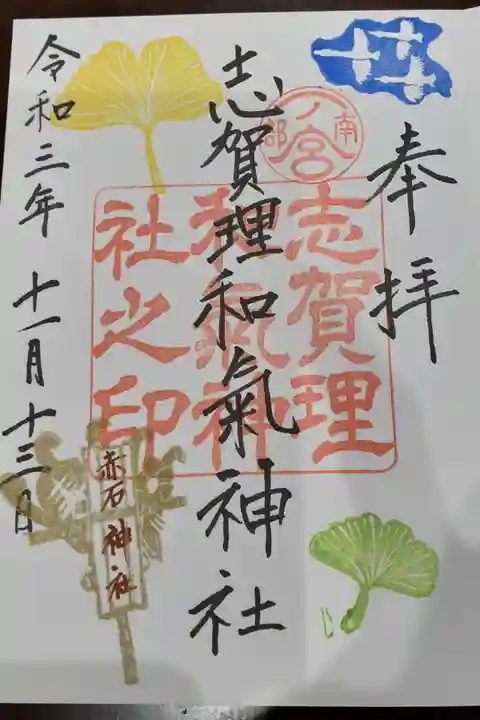 奉拝
南部一ノ宮
志賀理和氣神社
志賀理
和氣神
社之印
令和三年 十一月 十三日
赤石神社